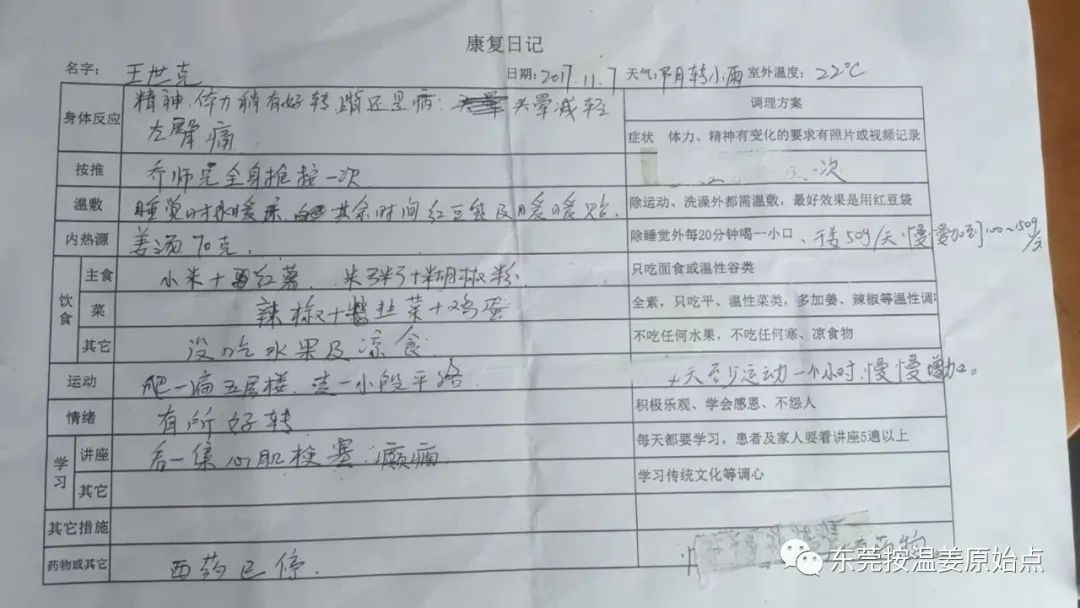 康复日记
名字： 王世克 日期：2017.11.7 天气：阴转小雨 室外温度：22℃
身体反应 精神、体力稍有好转，蹲还是痛：头晕减轻 调理方案
左臂痛 症状 体力、精神有变化的要求有照片或视频记录
按推 乔师兄全身推按一次 一次
温敷 睡觉时水暖床，其余时间红豆袋及暖暖贴。 除运动、洗澡外都需温敷，最好效果是用红豆袋
内热源 姜汤70克， 除睡觉外每20分钟喝一小口、干姜50g/天 慢慢加到100~150g/天
饮食 主食 小米+红薯 米+胡椒粉 只吃面食或温性谷类
菜 辣椒+韭菜+鸡蛋 全素，只吃平、温性菜类，多加姜、辣椒等温性调
其它 没吃水果及凉食 不吃任何水果，不吃任何寒、凉食物
运动 爬一遍五层楼，走一小段平路。 天至少运动一个小时，慢慢增加。
情绪 有所好转 积极乐观、学会感恩、不怨人
学习 讲座 看一集心肌梗塞、癫痫 每天都要学习，患者及家人要看讲座5遍以上
其它 学习传统文化等调心
其它措施
药物或其它 西药已停。 药物
东莞按温姜原始点